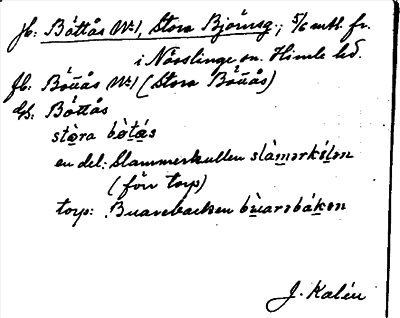 fb: Båttås No 1, Stora Björnsg.; 5/6 mtl. fr.
i Nösslinge sn. Himle hd.
fb: Bönås No 1 (Stora Bönås)
Gs: Båttås
stòra bòtås
en del: Slammerkullen slàmərkǿlən
(förr torp)
torp: Buarebacken bùarəbákən
J. Kalén